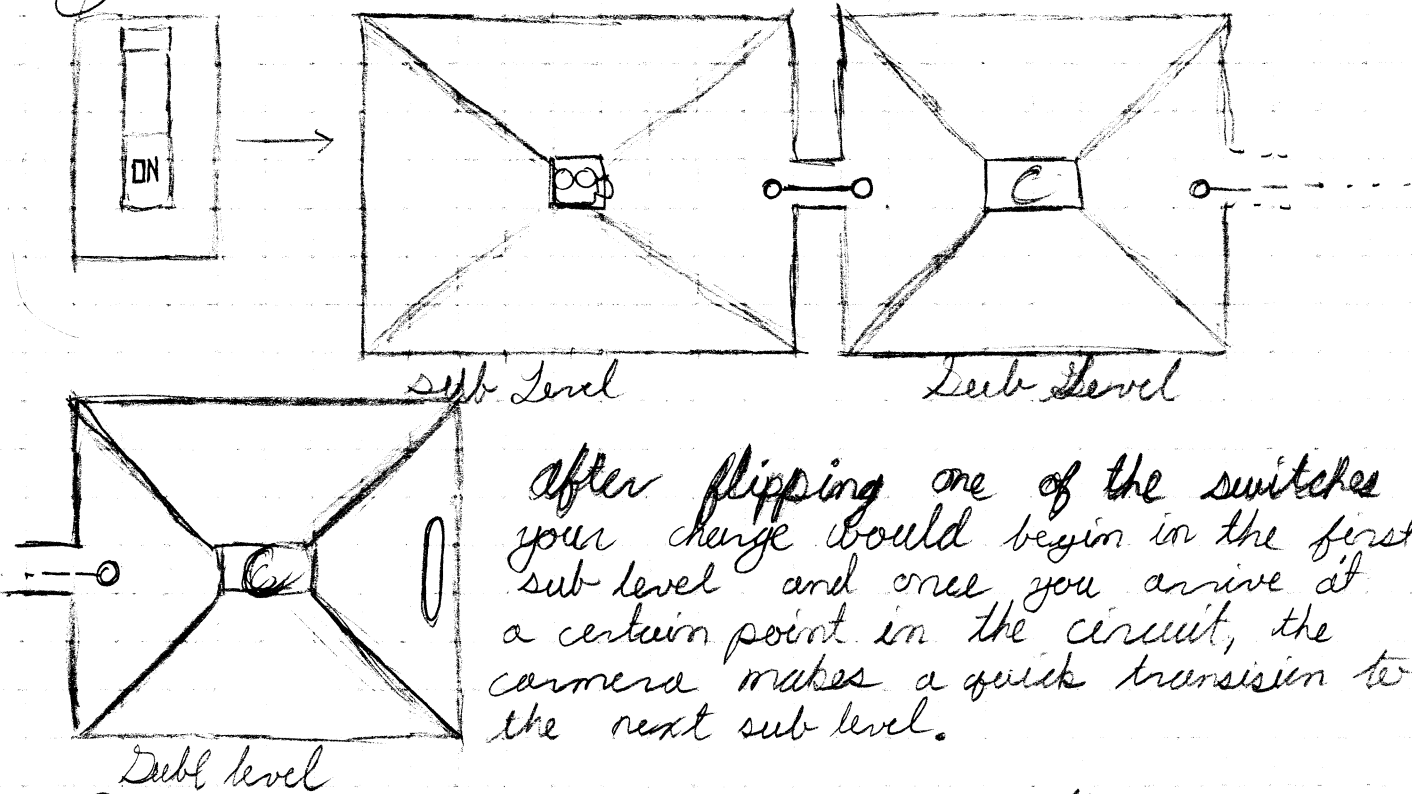 ON
C
sub Level
Sub Level
C
after flipping one of the switches
your charge would begin in the first
sub level and once you arrive at
a certain point in the circuit, the
camera makes a quick transision to
the next sub level.
Subl level